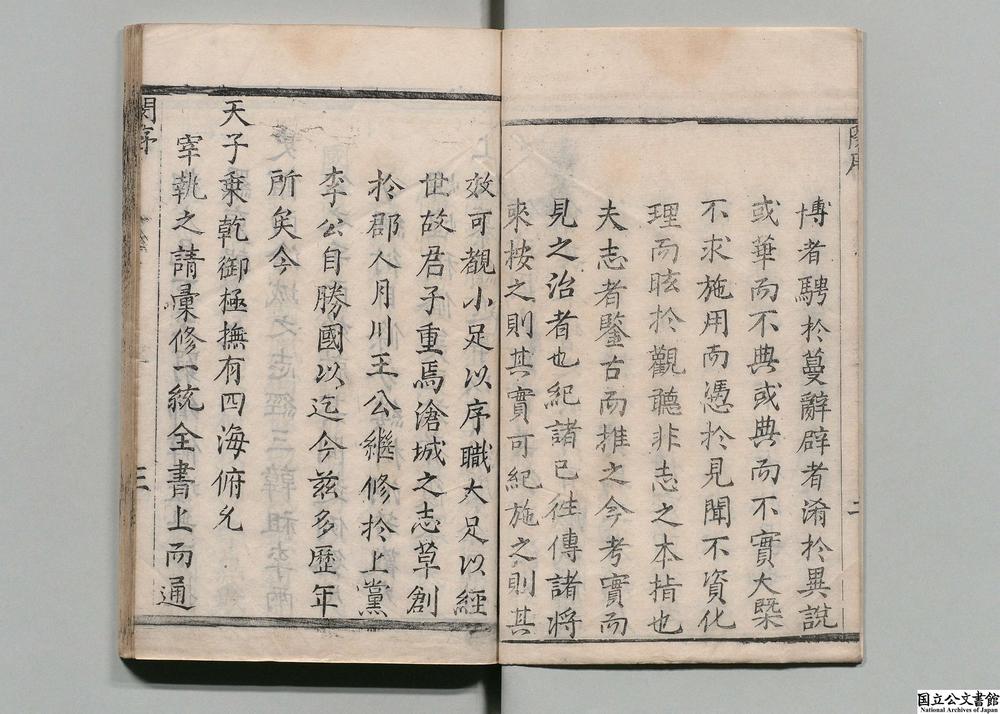 博者騁於蔓辭辟者淆於異說
或華而不典或典而不實大槩
不求施用而憑於見聞不資化
理而眩於觀聽非志之本指也
夫志者鑒古而推之今考實而
見之治者也紀諸已徃傳諸將
來按之則其實可紀施之則其
二
效可覩小足以序職大足以經
世故君子重焉滄城之志草創
於郡人月川王公繼修於上黨
李公自勝國以迄今茲多歷年
所矣今
天子乗乾御極撫有四海俯允
宰執之請彙修一統全書上而通
三
国立公文書館
National Archives of Japan